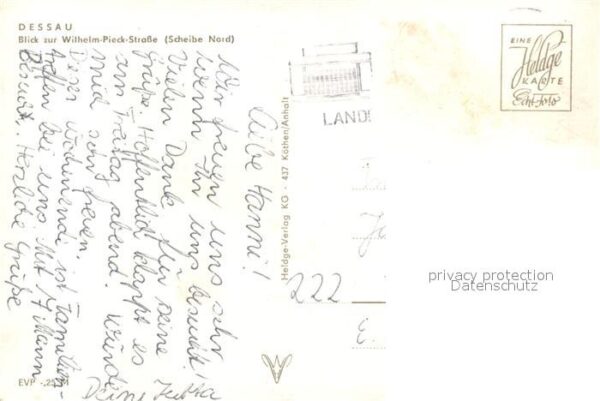 DESSAU
Blick zur Wilhelm-Pieck-Straße (Scheibe Nord)
Liebe Hanni!
Wir freuen uns sehr
wenn Ihr uns besucht!
Vielen Dank für Deine
Grüße. Hoffentlich klappt es
am Freitag abend. Würde
mich sehr freuen.
Dieses Wochenende ist Familien-
treffen bei uns. Mit 17 Mann
Besuch. Herzliche Grüße
Deine Jutta
EVP
Heldge-Verlag KG · 437 Köthen/Anhalt
LAND
EINE
Heldge
KARTE
Echt-Foto
222
privacy protection
Datenschutz